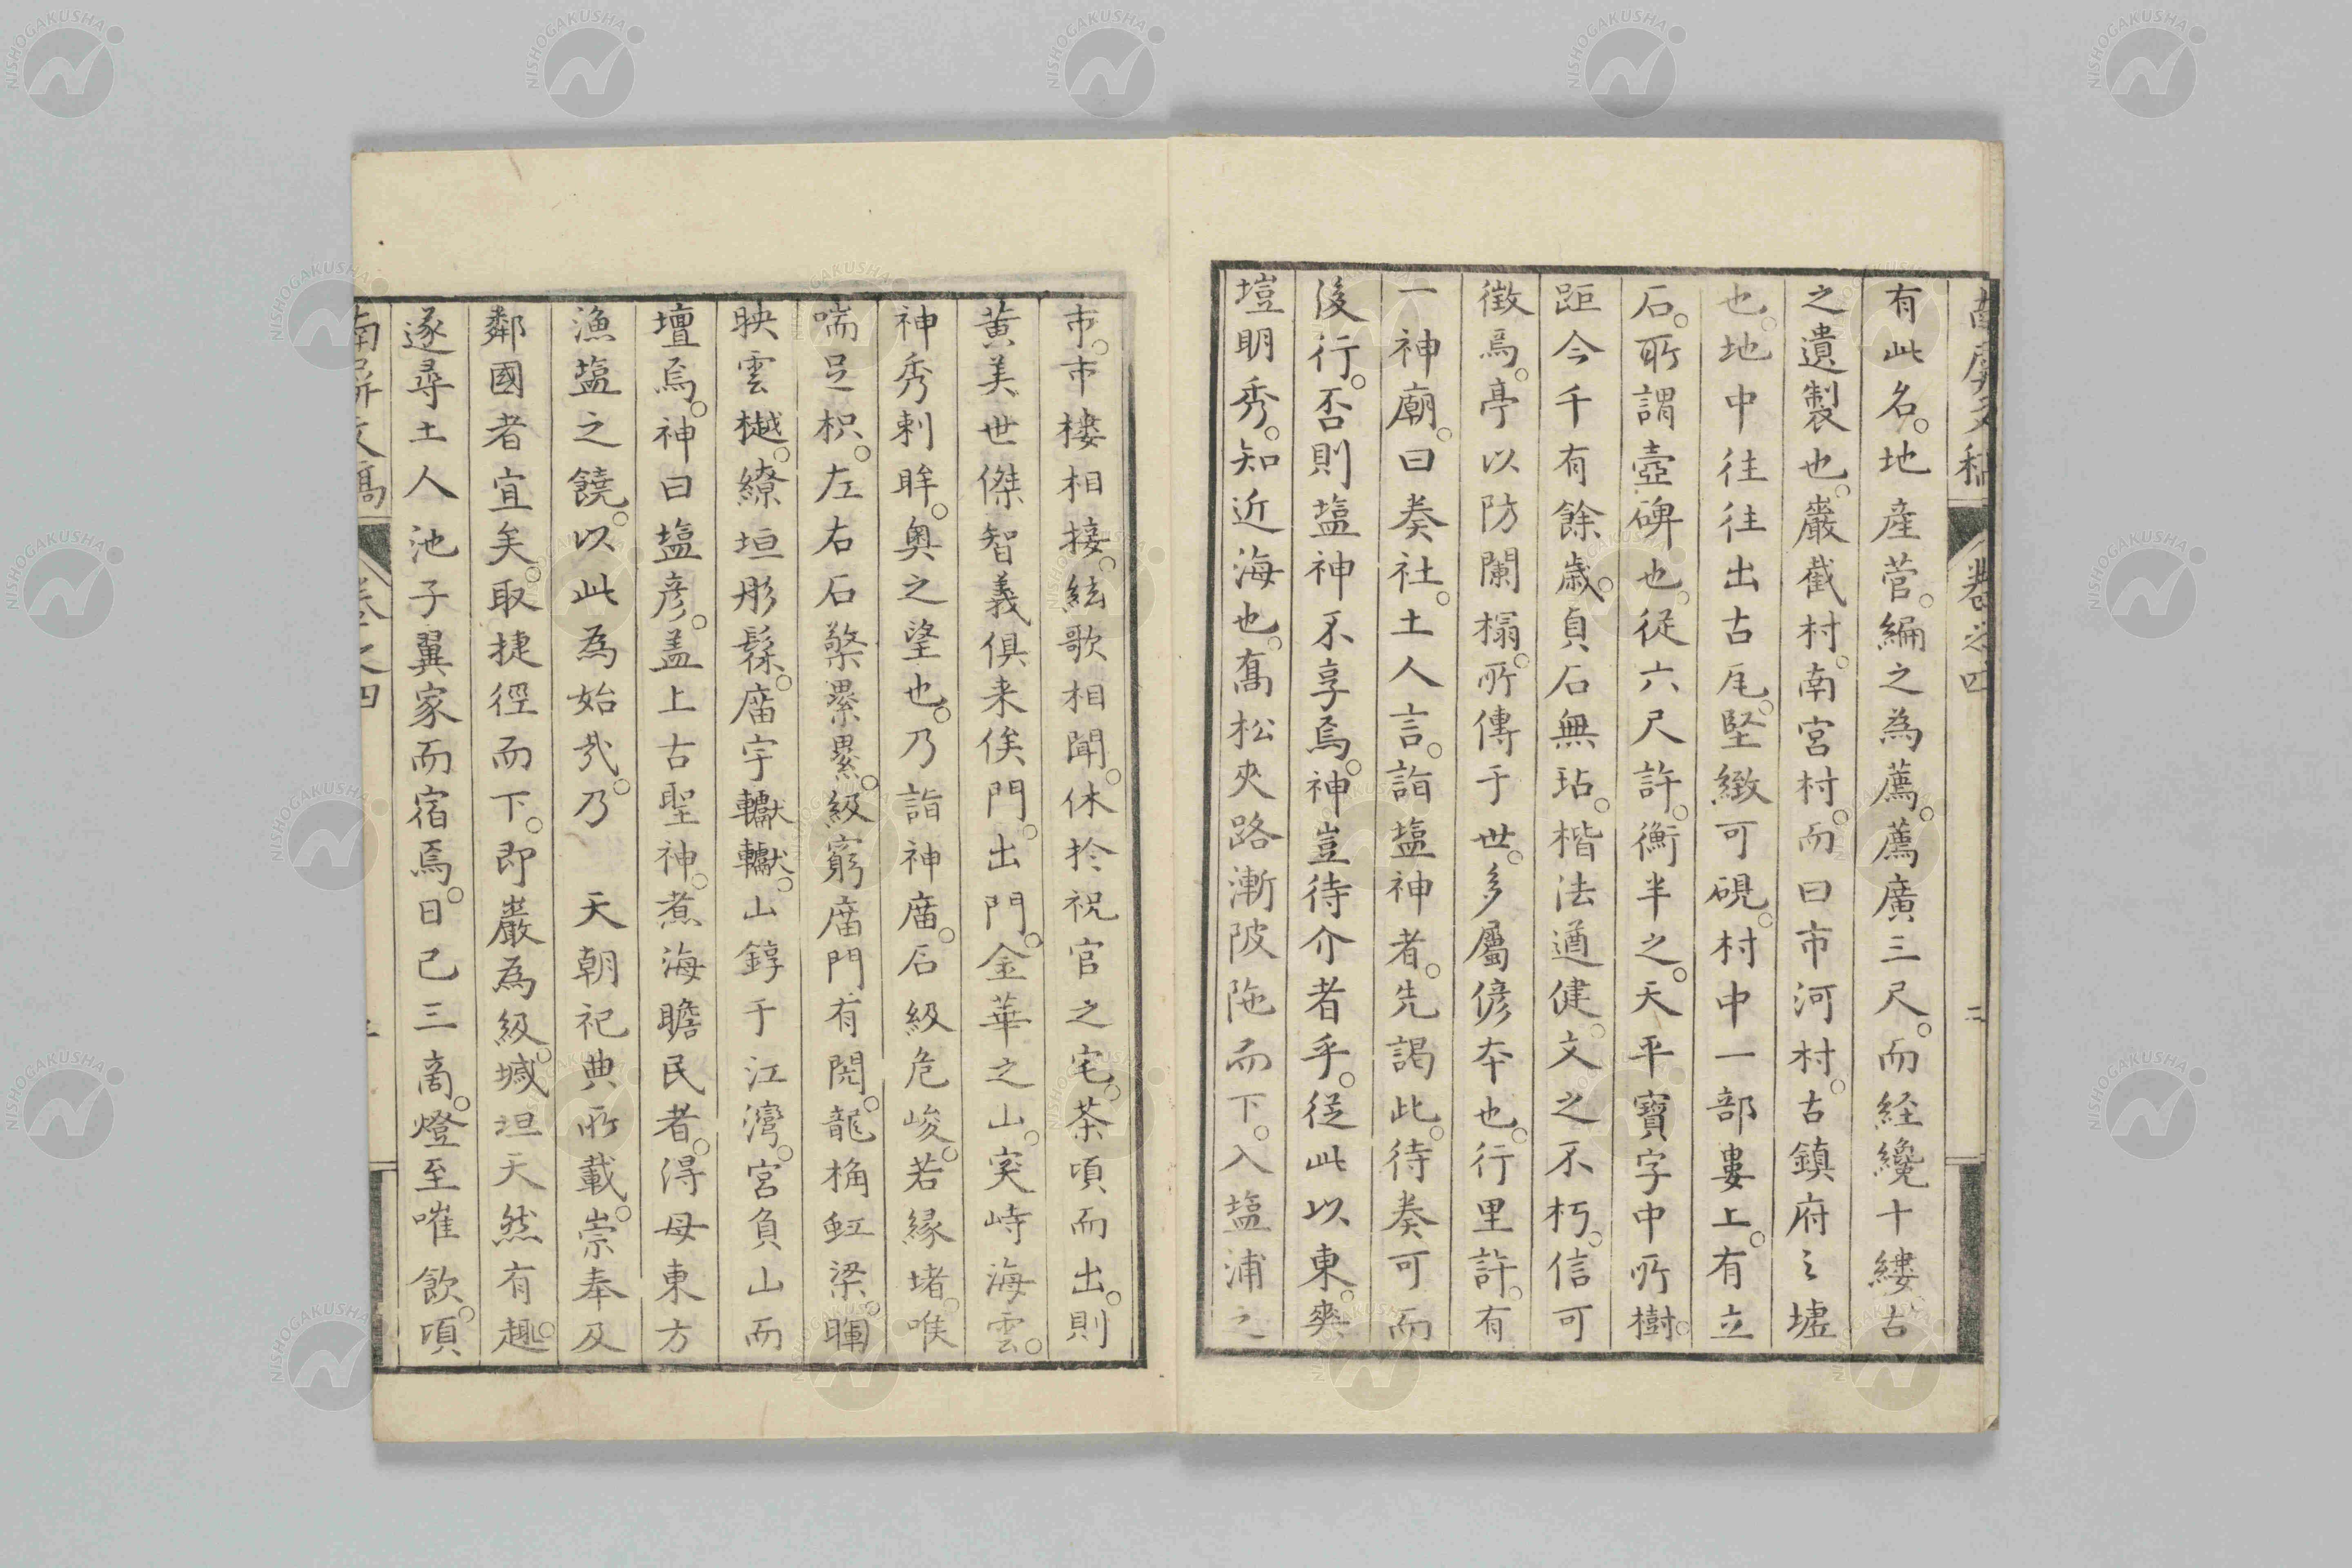 有此名。地産菅。編之為薦。薦廣三尺。而経纔十縷古
之遺製也。巖截村。南宮村。而曰市河村。古鎮府之墟
也。地中往往出古瓦。堅緻可硯。村中一部婁上。有立
石。所謂壺碑也。従六尺許。衡半之。天平寶字中所樹。
距今千有餘歳。貞石無玷。楷法遒健。文之不朽。信可
徴焉。亭以防闌榻。所傳于世。多屬偐夲也。行里許。有
一神廟。曰奏社。土人言。詣塩神者。先謁此。待奏可而
後行。否則塩神不享焉。神豈待介者乎。従此以東。爽
塏明秀。知近海也。髙松夾路漸陂陁而下。入塩浦之
市。市樓相接。絃歌相聞。休於祝官之宅。茶頃而出。則
黄美世傑智義俱来俟門。出門。金華之山。突峙海雲。
神秀刺眸。奥之望也。乃詣神廟。石級危峻。若縁堵。喉
喘足枳。左右石檠纍纍。級窮廟門有閌。龍桷虹梁。暉
映雲樾。繚垣彤髹。廟宇轥轥。山錞于江灣。宮負山而
壇焉。神曰塩彦。盖上古聖神。煮海贍民者。淂母東方
漁塩之饒。以此為始㢤。乃　天朝祀典所載。崇奉及
鄰國者宜矣。取捷徑而下。即巖為級。堿坦天然有趣。
遂尋土人池子翼家而宿焉。日已三商。燈至嗺飲。頃
南屏文稿
卷之四